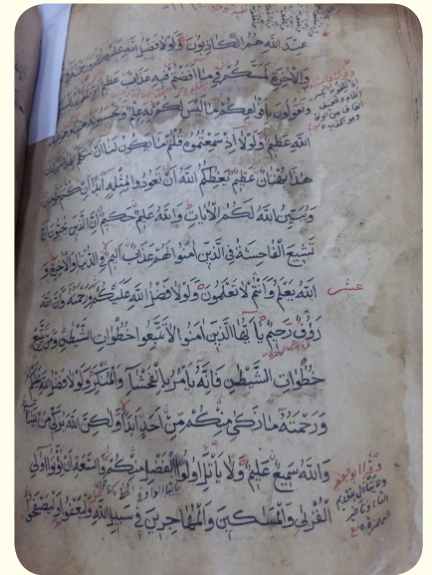 عند الله هم الكاذبون ولولا فضل الله عليكم ورحمته في
والاخرة لمسكم في ما افضتم فيه عذاب عظيم
وتقولون بافواهكم ما ليس لكم به علم وتحسبونه هينا
الله عظيم ولولا اذ سمعتموه قلتم ما يكون لنا ان
هذا بهتان عظيم يعظكم الله ان تعودوا لمثله ابدا ان كنتم
ويبين الله لكم الايات والله عليم حكيم ان الذين يحبون ان
تشيع الفاحشة في الذين امنوا لهم عذاب اليم في الدنيا والاخرة و
عشر
الله يعلم وانتم لا تعلمون ولولا فضل الله عليكم ورحمته وان الله
رؤف رحيم يا ايها الذين امنوا لا تتبعوا خطوات الشيطن ومن يتبع
خطوات الشيطن فانه يامر بالفحشاء والمنكر ولولا فضل الله عليكم
ورحمته ما زكى منكم من احد ابدا ولكن الله يزكي من يشاء
والله سميع عليم ولا ياتل اولوا الفضل منكم والسعة ان يؤتوا اولي
القربى والمسكين والمهاجرين في سبيل الله وليعفوا وليصفحوا
وقرا ابو جعفر
ولا يتأل بتقديم
التاء وتاخير
الهمزة